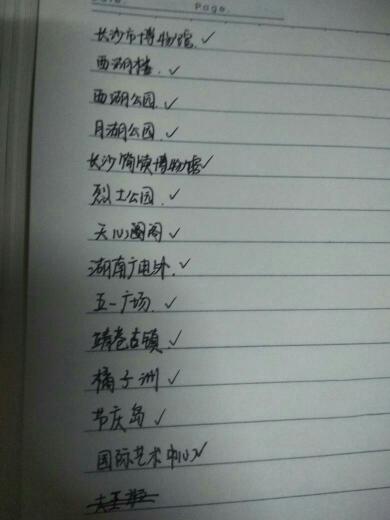 Date.
Page.
长沙市博物馆 ✓
西湖楼 ✓
西湖公园 ✓
月湖公园 ✓
长沙简牍博物馆 ✓
烈士公园 ✓
天心阁 ✓
湖南广电外 ✓
五一广场 ✓
靖港古镇 ✓
橘子洲 ✓
节庆岛 ✓
国际艺术中心 ✓